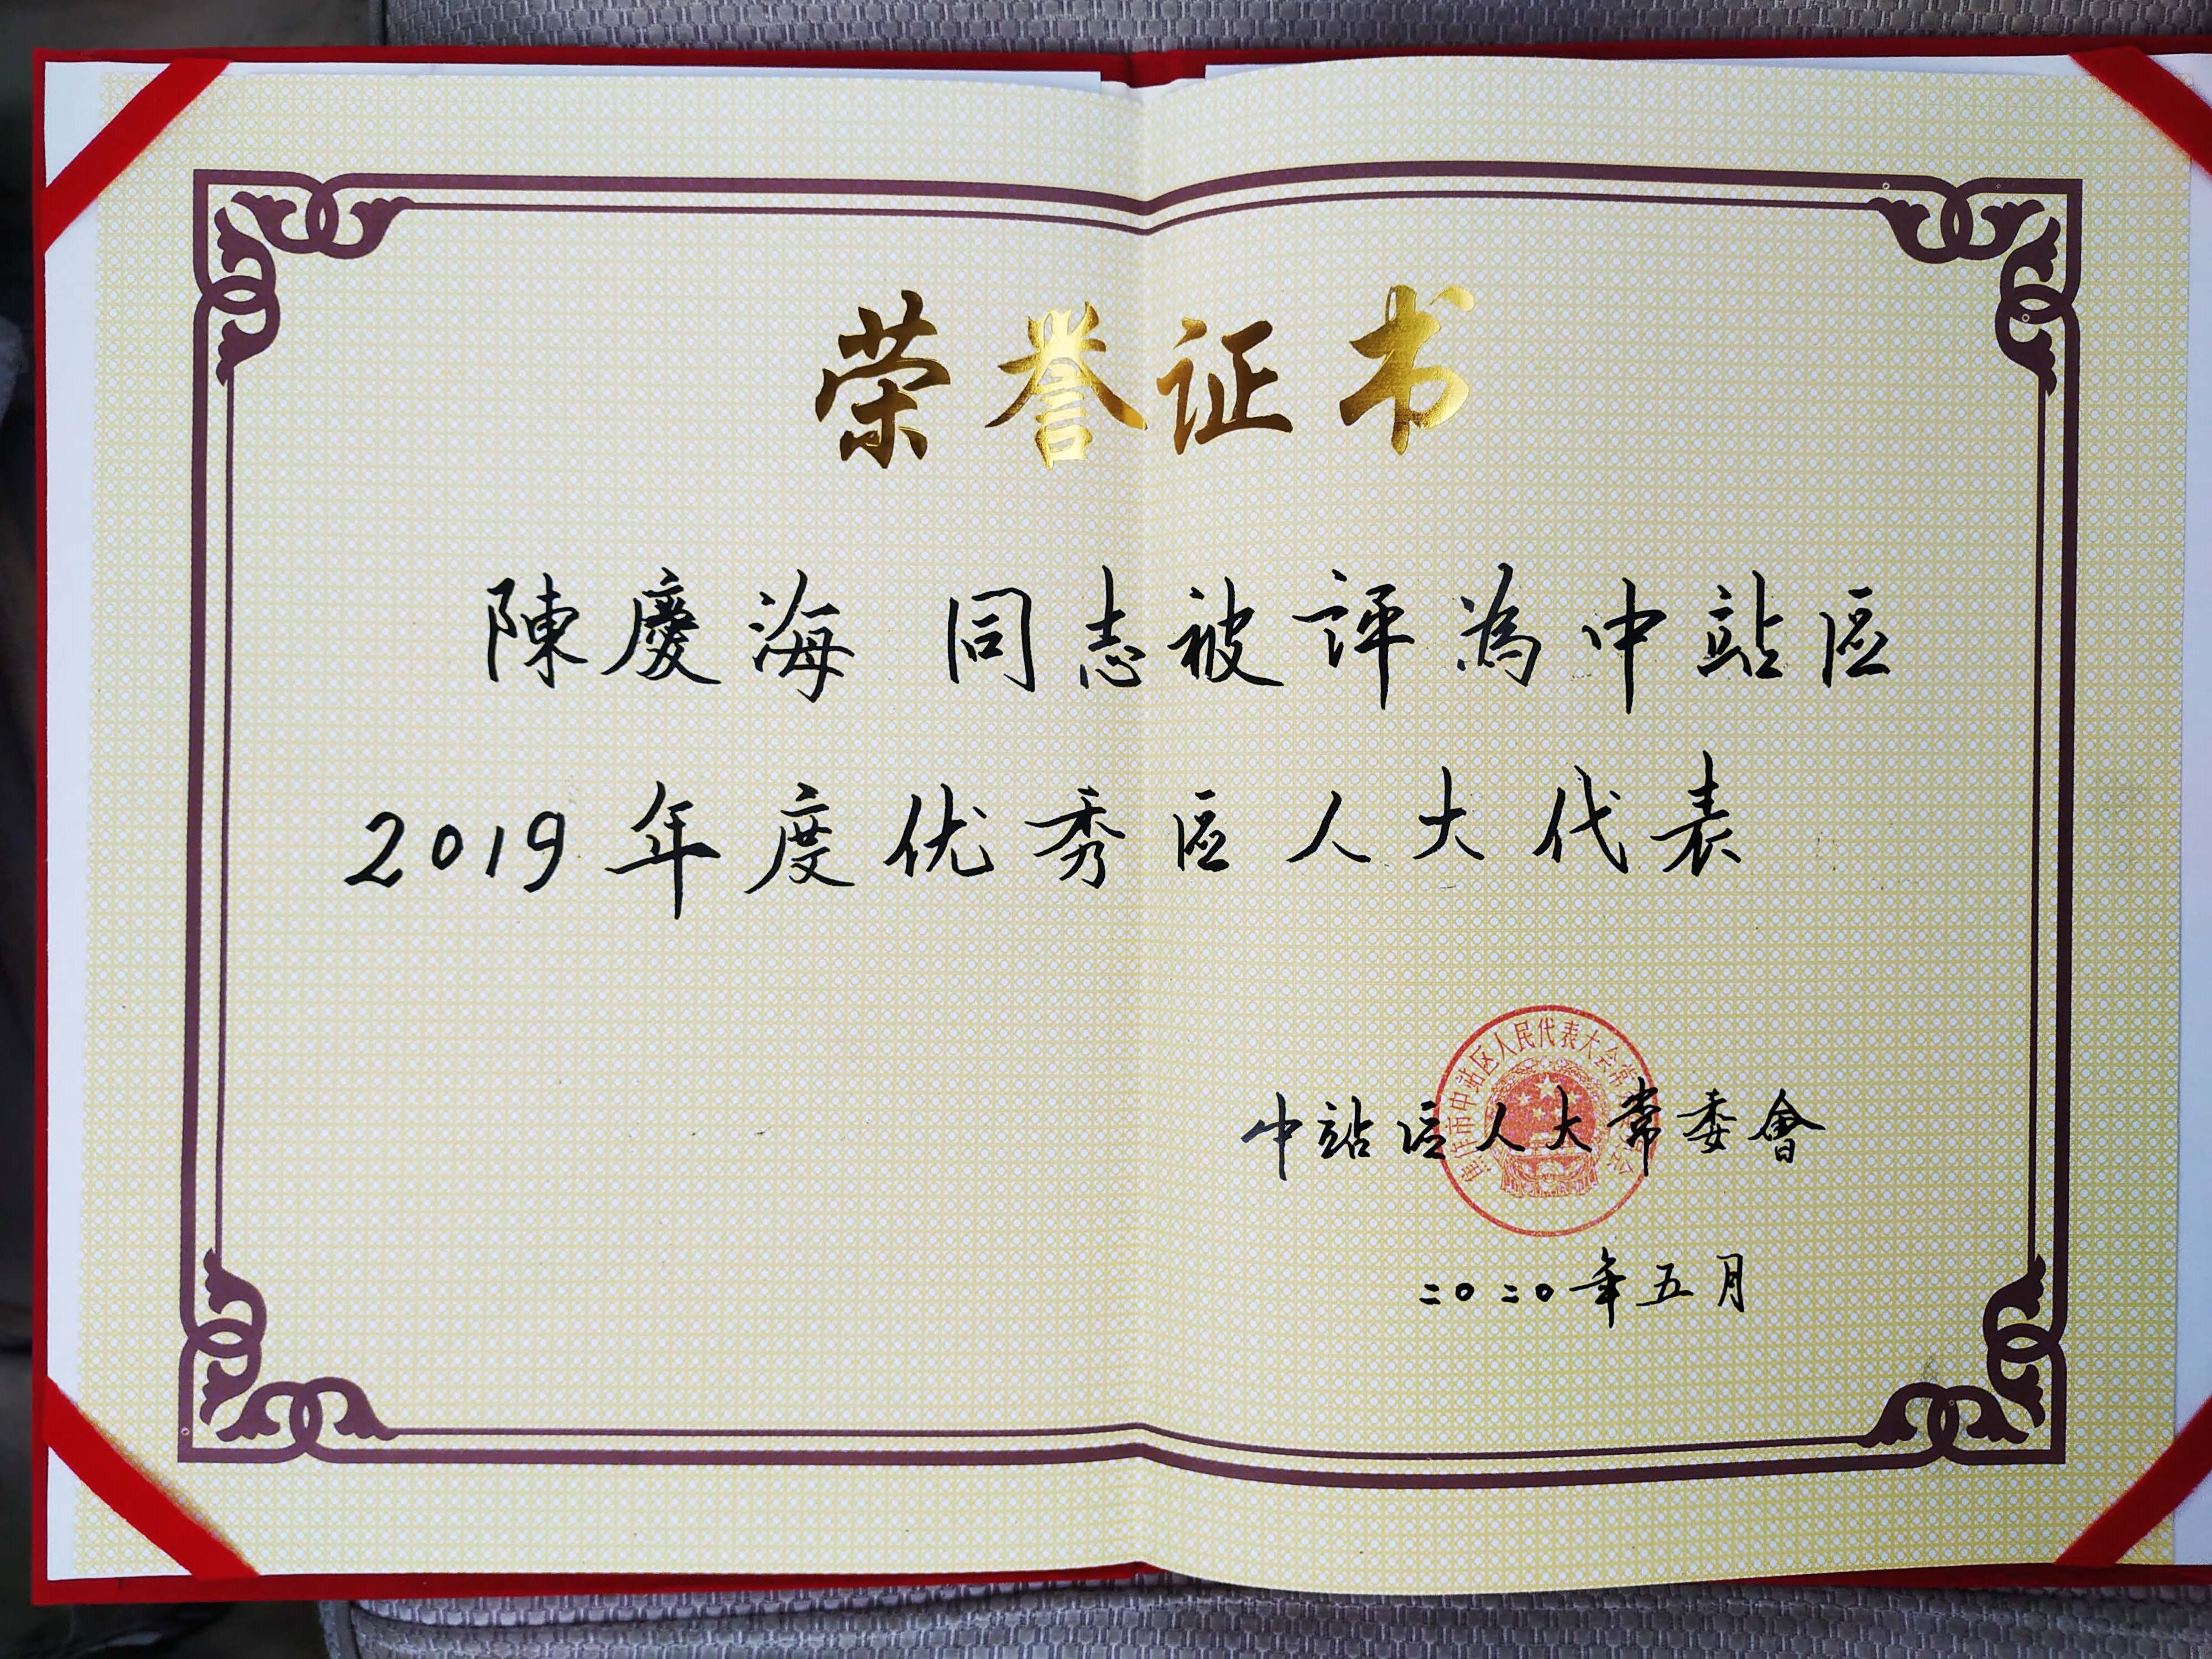 荣誉证书
陳慶海 同志被評為中站區
2019年度优秀區人大代表
焦作市中站区人民代表大会常
中站區人大常委會
二〇二〇年五月